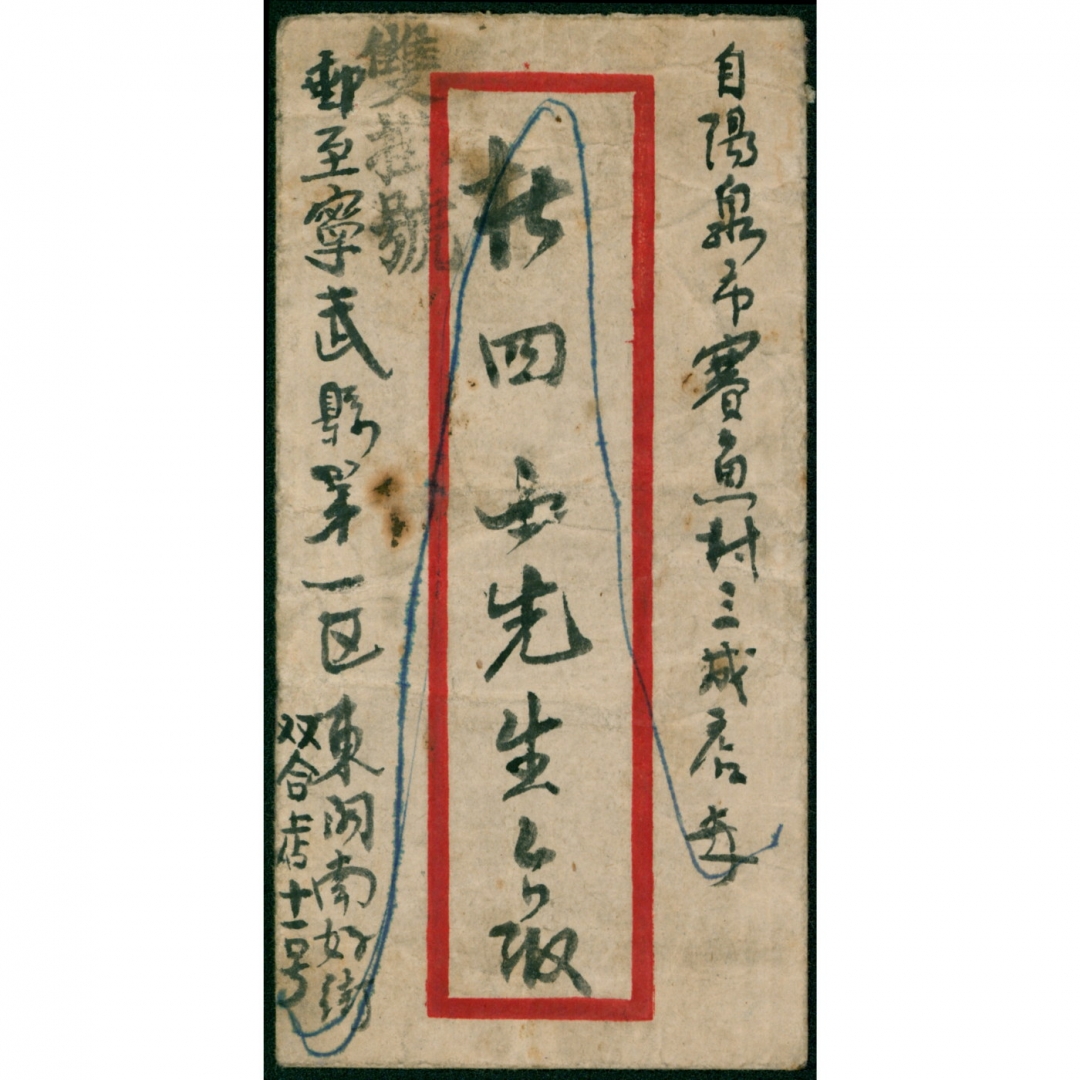 自陽泉市賽魚村三成店寄
杜四 先生 啟
雙掛號
郵至寧武縣第一区東関南好街
双合店十一号